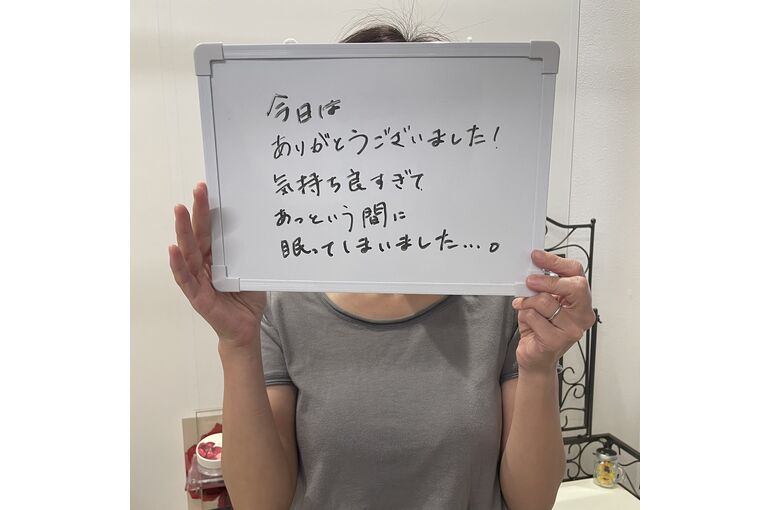 今日は
ありがとうございました!
気持ち良すぎて
あっという間に
眠ってしまいました...。